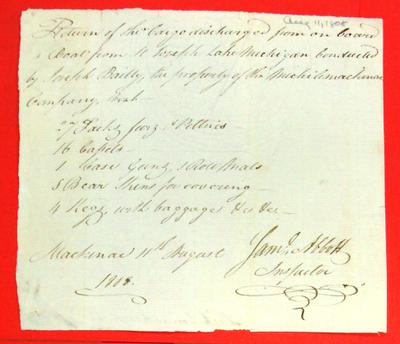 Aug 11, 1808
Return of the Cargo discharged from on board
a Boat from St Joseph Lake Michigan conducted
by Joseph Bailly, the property of the Michilimackinac
Company,
27 Packs furs & Peltries
16 Cassets
1 Case Guns, 1 Roll Mats
5 Bear Skins for covering
4 Kegs, with baggage &c &c
Mackinac 11th August
1808.
Saml. Abbott
Inspector